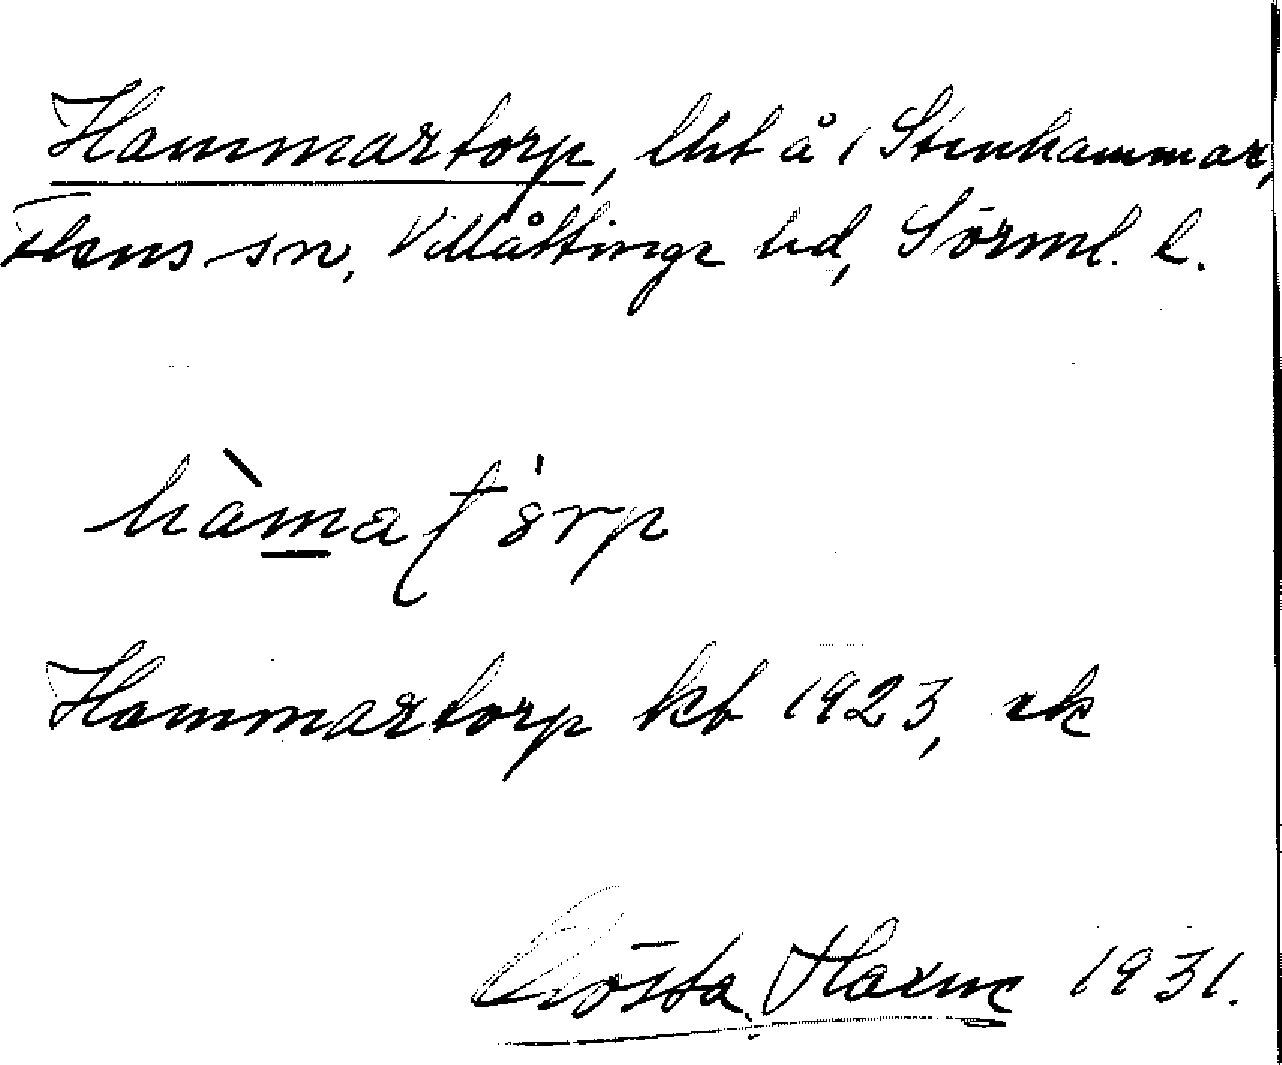 Hammartorp, lht å 1 Stenhammar,
Flens sn, Villåttinge hd, Sörml. l.
hàmatórp
Hammartorp kb 1923, ek
Gösta Harne 1931.